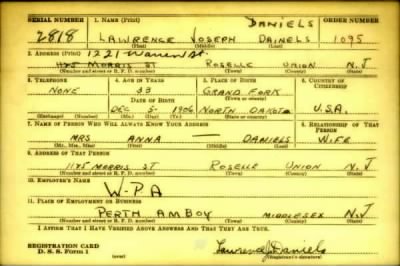 DANIELS
SERIAL NUMBER 1. NAME (Print) ORDER NUMBER
2818 LAWRENCE JOSEPH DAINELS 1095
(First) (Middle) (Last)
2. ADDRESS (Print) 1221 Warren St.
1175 MORRIS ST ROSELLE UNION N.J
(Number and street or R. F. D. number) (Town) (County) (State)
3. TELEPHONE 4. AGE IN YEARS 5. PLACE OF BIRTH 6. COUNTRY OF CITIZENSHIP
NONE 33 GRAND FORK
DATE OF BIRTH (Town or county)
DEC 5 1906 NORTH DAKOTA U.S.A.
(Exchange) (Number) (Mo.) (Day) (Yr.) (State or country)
7. NAME OF PERSON WHO WILL ALWAYS KNOW YOUR ADDRESS 8. RELATIONSHIP OF THAT PERSON
MRS ANNA — DANIELS WIFE
(Mr., Mrs., Miss) (First) (Middle) (Last)
9. ADDRESS OF THAT PERSON
1175 MORRIS ST ROSELLE UNION N.J
(Number and street or R. F. D. number) (Town) (County) (State)
10. EMPLOYER'S NAME
W-P.A
11. PLACE OF EMPLOYMENT OR BUSINESS
PERTH AMBOY MIDDLESEX N.J
(Number and street or R. F. D. number) (Town) (County) (State)
I AFFIRM THAT I HAVE VERIFIED ABOVE ANSWERS AND THAT THEY ARE TRUE.
REGISTRATION CARD
D. S. S. Form 1 Lawrence J Daniels
(Registrant's signature)